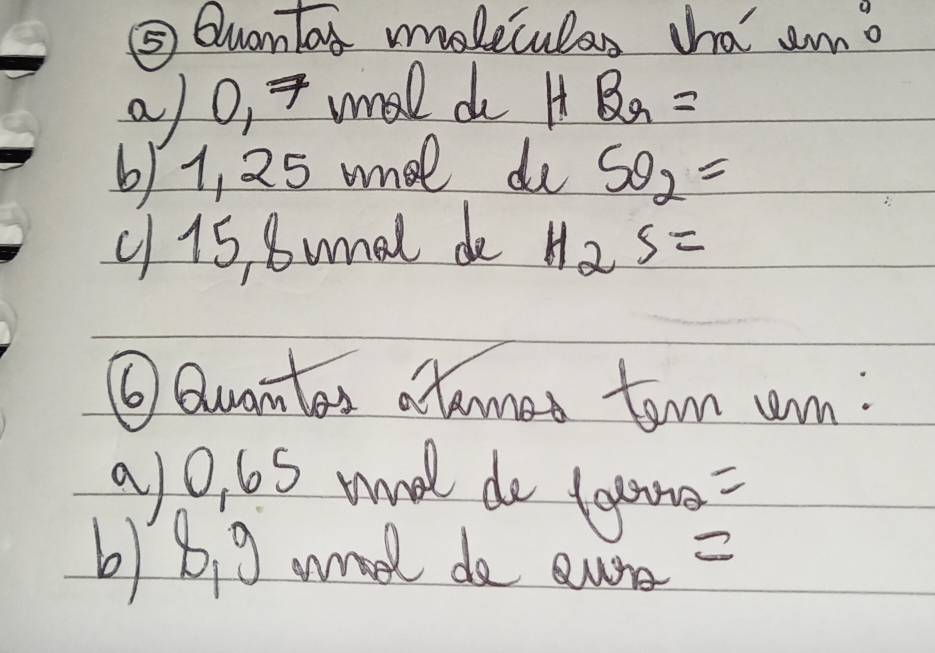 ⑤ Quantas moléculas há em:
a) 0,7 mol de HBr =
b) 1,25 mol de SO₂ =
c) 15,8 mol de H₂S =
⑥ Quantos átomos tem em:
a) 0,65 mol de ferro =
b) 8,9 mol de ouro =